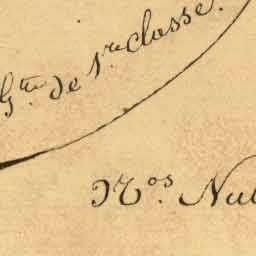 G.te de 1.re classe.
N.os Nu